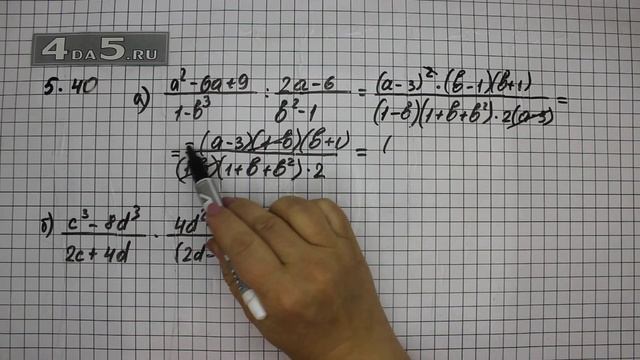 4DA5.RU
5.40 а) (a² - 6a + 9)/(1 - b³) : (2a - 6)/(b² - 1) = ((a - 3)² · (b - 1)(b + 1))/((1 - b)(1 + b + b²) · 2(a - 3)) =
= (-(a - 3)(1 - b)(b + 1))/((1 - b)(1 + b + b²) · 2) = (
б) (c³ - 8d³)/(2c + 4d) · 4d /(2d -